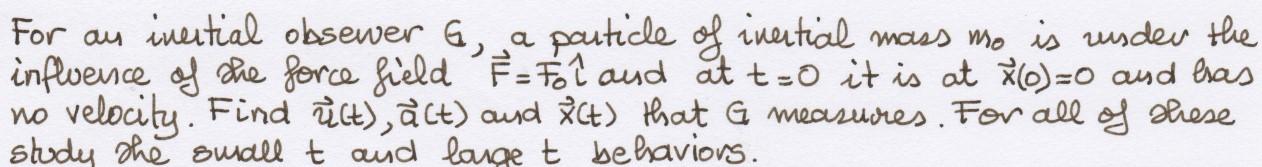 For an inertial observer G, a particle of inertial mass m₀ is under the
influence of the force field F⃗ = F₀ î and at t=0 it is at x⃗(0)=0 and has
no velocity. Find u⃗(t), a⃗(t) and x⃗(t) that G measures. For all of these
study the small t and large t behaviors.